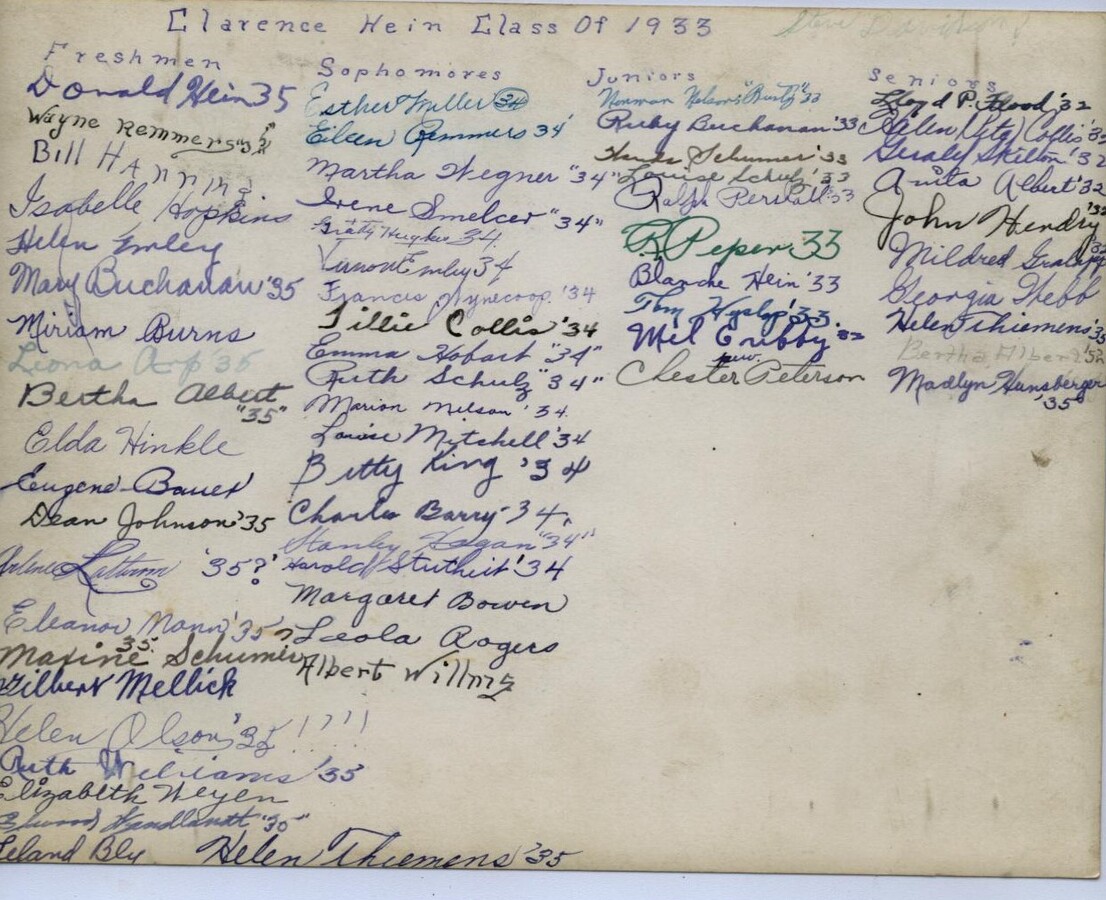 Clarence Hein Class Of 1933
Freshmen
Donald Hein 35
Wayne Remmers "35"
Bill Hanning
Isabelle Hopkins
Helen Emley
Mary Buchanan '35
Miriam Burns
Leona Arp '35
Bertha Albert "35"
Elda Hinkle
Eugene Bauer
Dean Johnson '35
'35?
Eleanor Mann '35
Maxine Schumer 35
Gilbert Mellick
Helen Olson '35 !!!!
Ruth Williams '35
Elizabeth Weyen
"35"
Leland Bly
Helen Thiemens '35
Sophomores
Esther Miller 34
Eileen Remmers 34'
Martha Wegner "34"
Irene Smelcer "34"
Hughes 34
Vernon Emley 34
Francis Wynecoop '34
Tillie Collis '34
Emma Hobart "34"
Ruth Schulz "34"
Marion Nelson '34
Louise Mitchell '34
Betty King '34
Charles Barry - 34
Stanley Hogan "34"
Harold Stutheit '34
Margaret Bowen
Leola Rogers
Albert Willms
Juniors
Norman Nelson '33
Ruby Buchanan '33
Schumer '33
Louise Schulz '33
Ralph 33
R Peper 33
Blanche Hein '33
Tom Hyslop '33
Mil Grubby '32
Chester Peterson
Seniors
Lloyd P. Flood '32
Helen (Pity) Collis '32
Geraly Skillen '32
Anita Albert '32
John Hendry '32
Mildred
Georgia Webb
Helen Thiemens '35
Bertha Albert
Madlyn Hunsberger '35